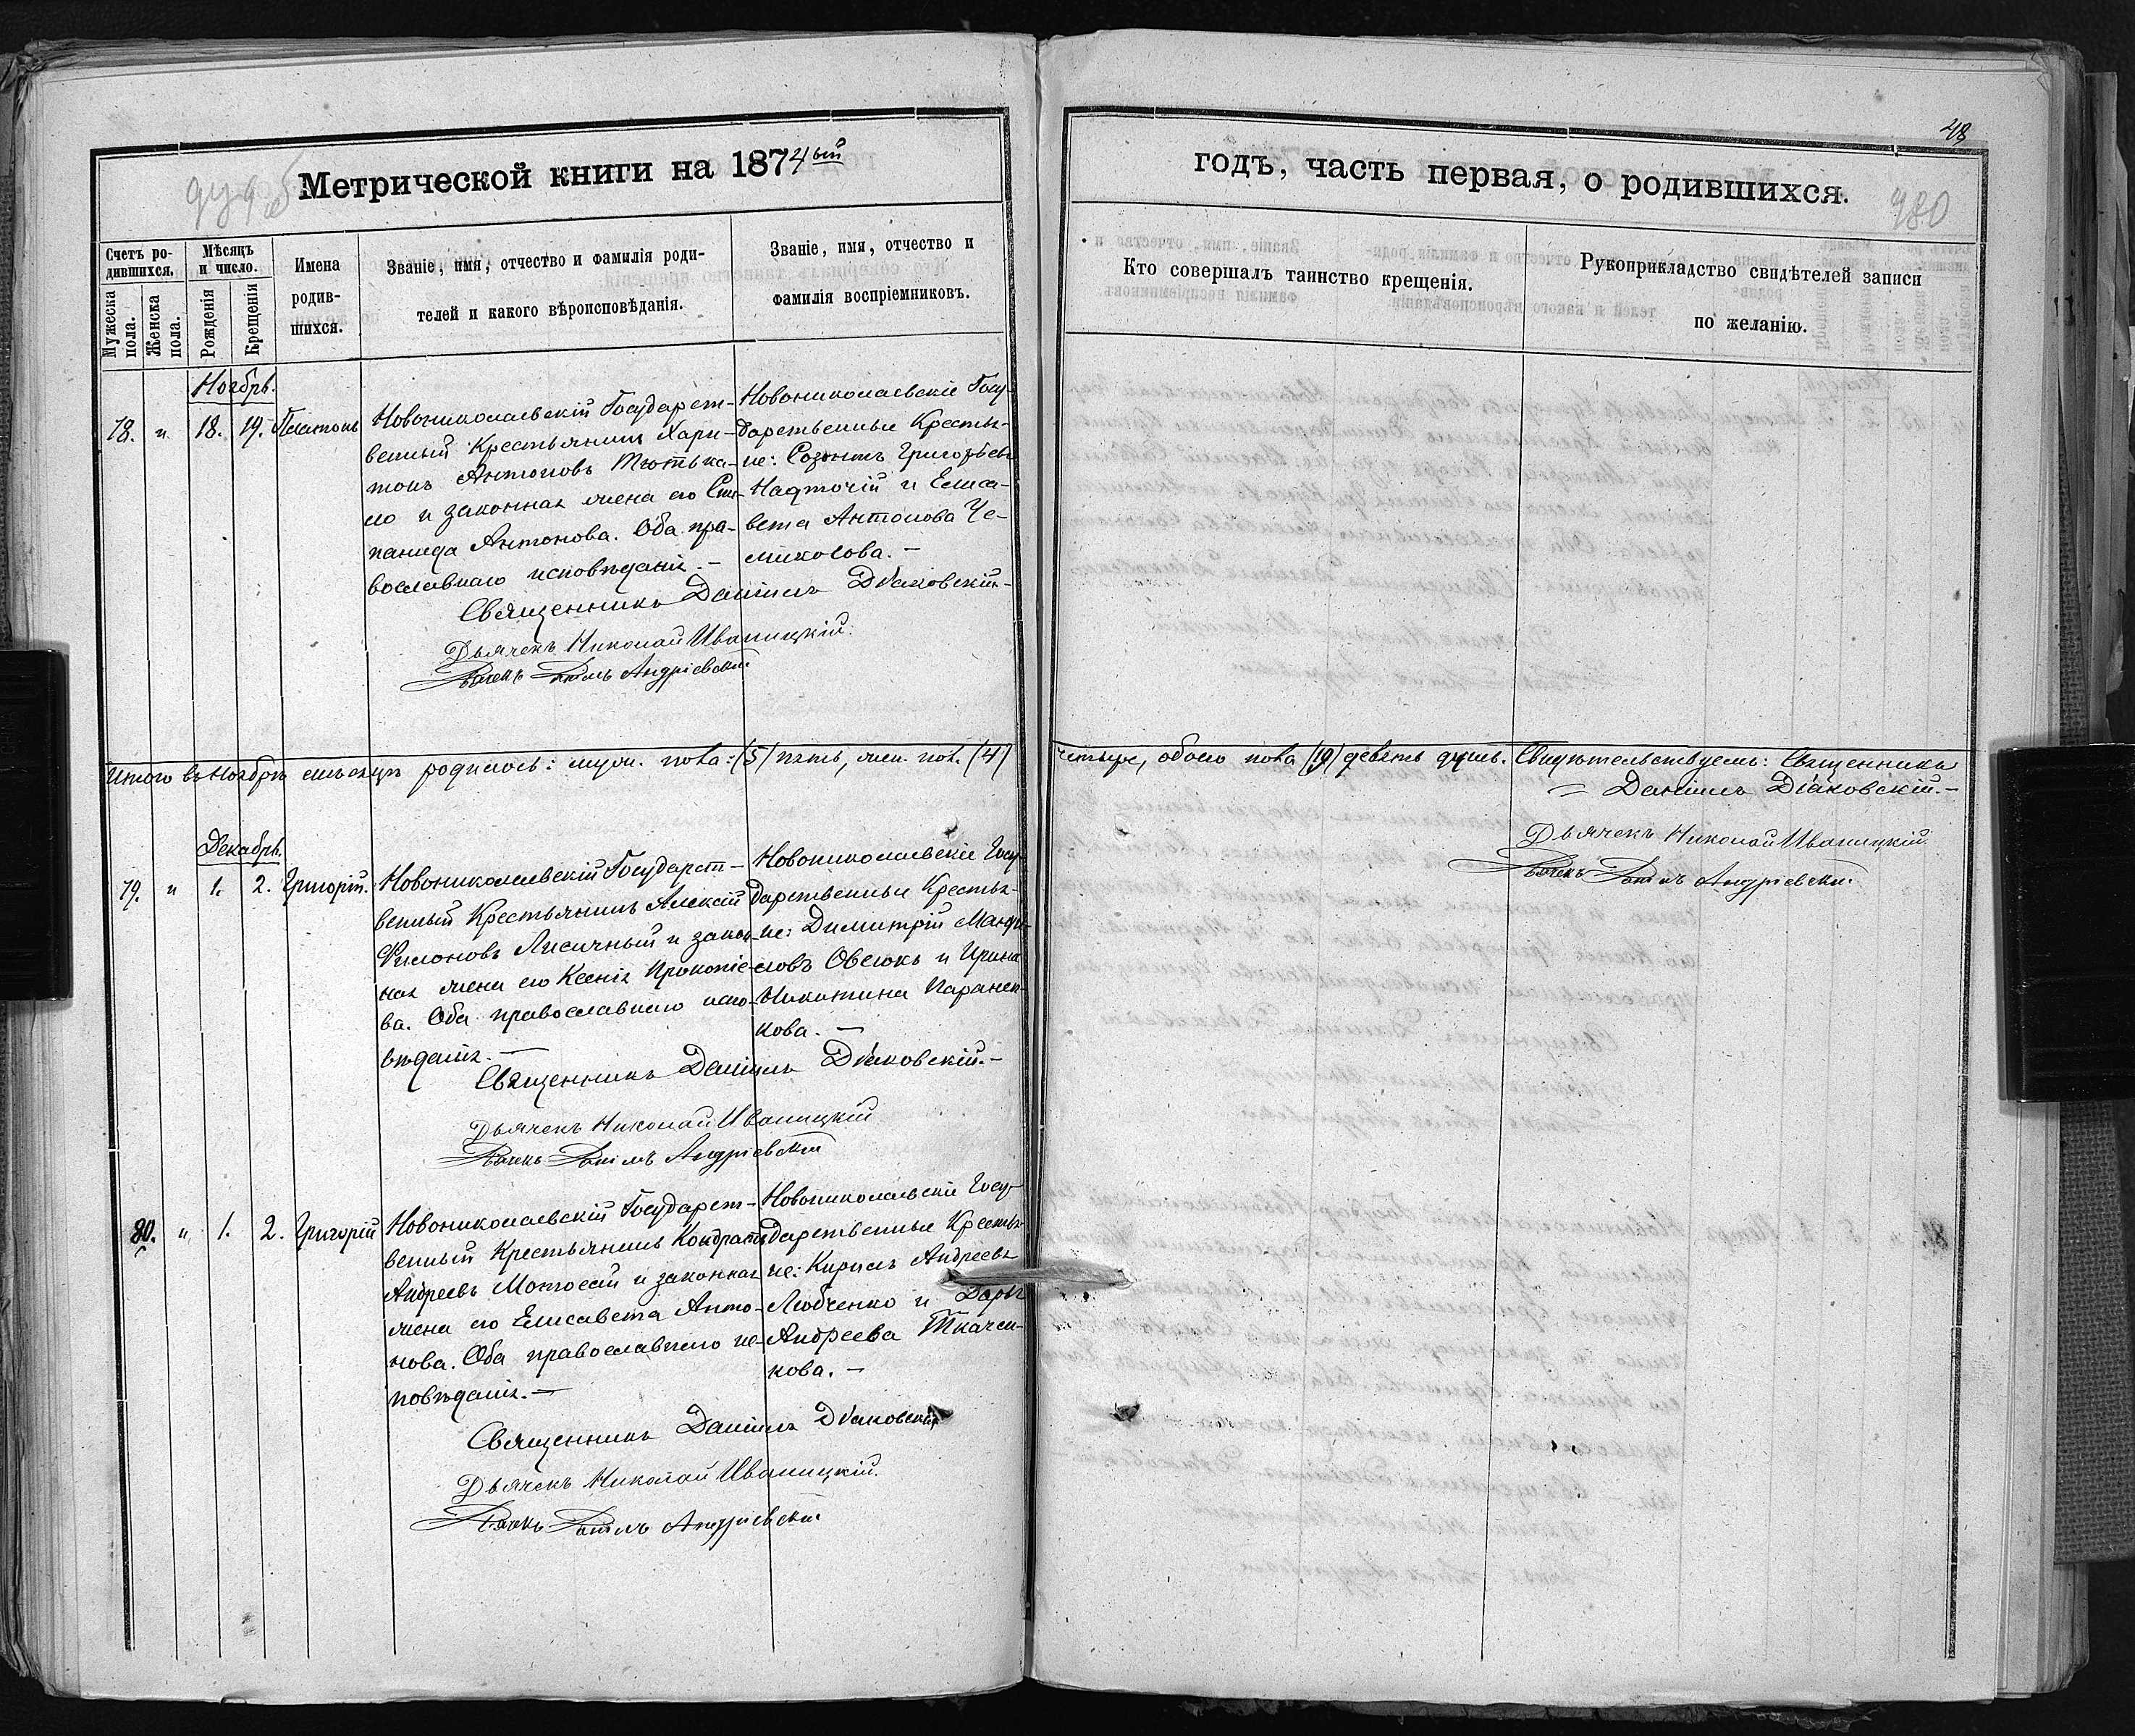 Метрической книги на 1874ый
годъ, часть первая, о родившихся.
48
480
Счетъ ро-
дившихся.
Мужеска пола.
Женска пола.
Мѣсяцъ
и число.
Рожденія
Крещенія
Имена
родив-
шихся.
Званіе, имя, отчество и фамилія роди-
телей и какого вѣроисповѣданія.
Званіе, имя, отчество и
фамилія воспріемниковъ.
Кто совершалъ таинство крещенія.
Рукоприкладство свидѣтелей записи
по желанію.
Ноябрь.
78. " 18. 19. Платонъ
Новониколаевскій Государст-
венный Крестьянинъ Хари-
тонъ Антоновъ
и законная жена его Сте-
панида Антонова. Оба пра-
вославнаго исповѣданія. –
Новониколаевскіе Госу-
дарственные Крестья-
не: Созонтъ Григорьевъ
Надточій и Елиса-
вета Антонова Че-
мисова. –
Священникъ Даніилъ Діаковскій. –
Дьячекъ Николай Иваницкій.
Дьячекъ Даніилъ Андріевскій
Итого въ Ноябрѣ мѣсяцѣ родилось: муж. пола: (5) пять, жен. пол. (4)
четыре, обоего пола (9) девять душъ. Свидѣтельствуемъ: Священникъ
Даніилъ Діаковскій. –
Дьячекъ Николай Иваницкій.
Дьячекъ Даніилъ Андріевскій
Декабрь.
79. " 1. 2. Григорій.
Новониколаевскій Государст-
венный Крестьянинъ Алексѣй
Филоновъ Лисичный и закон-
ная жена его Ксенія Прокопіе-
ва. Оба православнаго испо-
вѣданія. –
Новониколаевскіе Госу-
дарственные Крестья-
не: Димитрій
Овсюкъ и Ирина
Никитина Паранен-
кова. –
Священникъ Даніилъ Діаковскій. –
Дьячекъ Николай Иваницкій
Дьячекъ Даніилъ Андріевскій
80. " 1. 2. Григорій
Новониколаевскій Государст-
венный Крестьянинъ Кондратъ
Андреевъ и законная
жена его Елисавета Анто-
нова. Оба православнаго ис-
повѣданія. –
Новониколаевскіе Госу-
дарственные Крестья-
не: Кирилъ Андреевъ
Любченко и Дарья
Андреева Ткачен-
кова. –
Священникъ Даніилъ Діаковскій
Дьячекъ Николай Иваницкій.
Дьячекъ Даніилъ Андріевскій